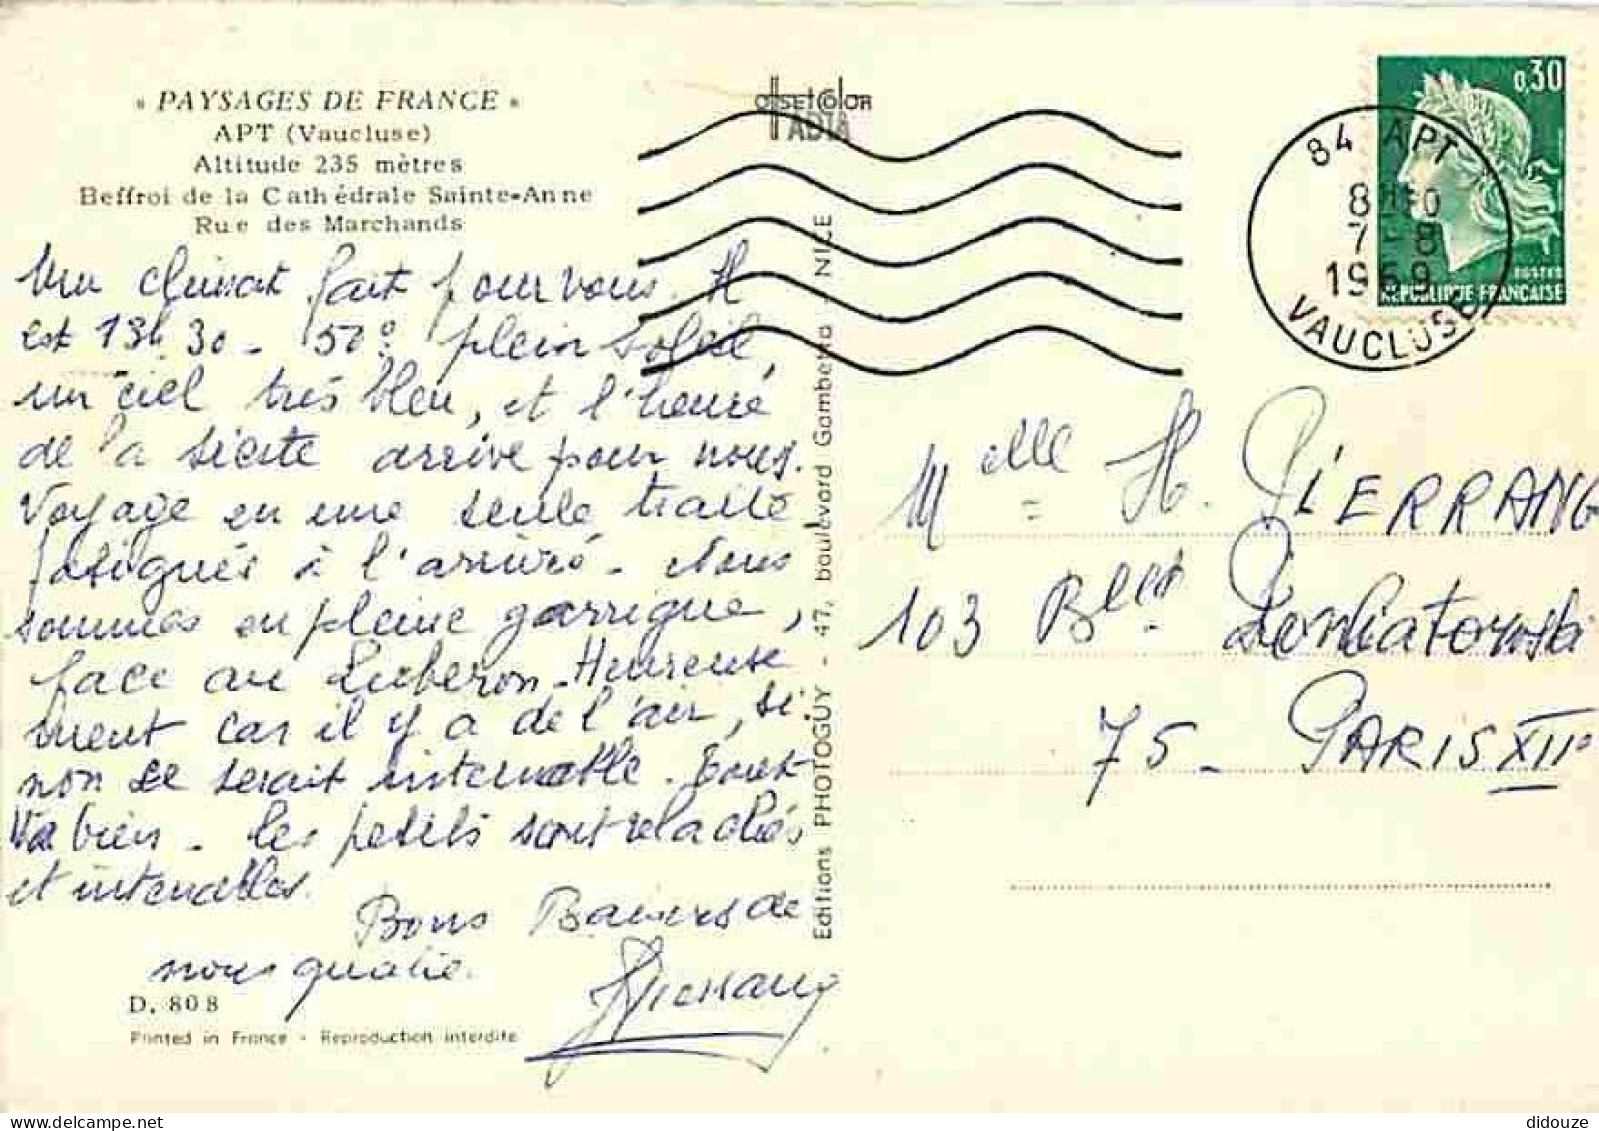 « PAYSAGES DE FRANCE »
APT (Vaucluse)
Altitude 235 mètres
Beffroi de la Cathédrale Sainte-Anne
Rue des Marchands
Un climat fait pour vous. Il
est 13h30 - 50° plein soleil,
un ciel très bleu, et l'heure
de la sieste arrive pour nous.
Voyage en une seule traite
fatigués à l'arrivé. Nous
sommes en pleine garrigue,
face au Luberon. Heureuse
ment car il y a de l'air, si
non ce serait intenable. Tout
va bien. les petits sont relachés
et intenables.
Bons Baisers de
nous quatre.
D. 808
Printed in France - Reproduction interdite
OFFSETCOLOR
ADIA
Editions PHOTOGUY - 47, boulevard Gambetta - NICE
0,30
POSTES
REPUBLIQUE FRANÇAISE
84 APT
7-8
1969
VAUCLUSE
Melle H. PIERRANG
103 Bled Poniatowski
75 - PARIS XIIe
didouze